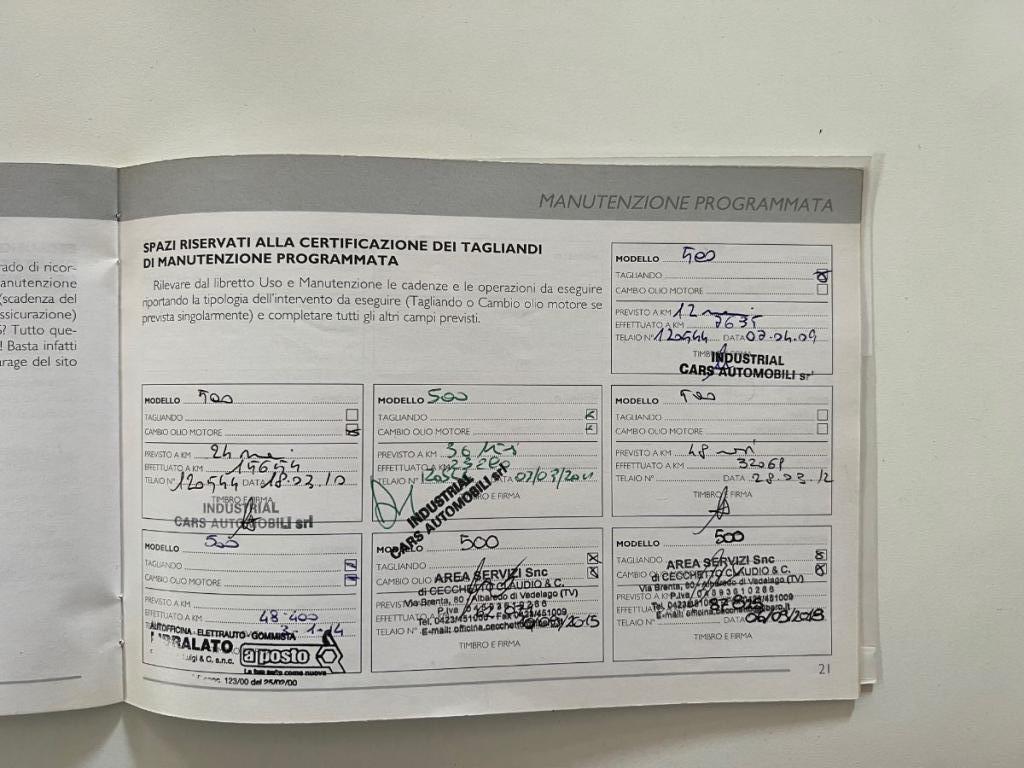 rado di ricor-
anutenzione
(scadenza del
ssicurazione)
? Tutto que-
! Basta infatti
arage del sito
MANUTENZIONE PROGRAMMATA
SPAZI RISERVATI ALLA CERTIFICAZIONE DEI TAGLIANDI
DI MANUTENZIONE PROGRAMMATA
Rilevare dal libretto Uso e Manutenzione le cadenze e le operazioni da eseguire
riportando la tipologia dell'intervento da eseguire (Tagliando o Cambio olio motore se
prevista singolarmente) e completare tutti gli altri campi previsti.
MODELLO 500
TAGLIANDO
CAMBIO OLIO MOTORE
PREVISTO A KM 12 mesi
EFFETTUATO A KM 7635
TELAIO N° 120544 DATA 07.04.09
INDUSTRIAL
CARS AUTOMOBILI srl
MODELLO 500
TAGLIANDO
CAMBIO OLIO MOTORE
PREVISTO A KM 24 mesi
EFFETTUATO A KM 15654
TELAIO N° 120544 DATA 18.03.10
TIMBRO E FIRMA
INDUSTRIAL
CARS AUTOMOBILI srl
MODELLO 500
TAGLIANDO
CAMBIO OLIO MOTORE
PREVISTO A KM 36
EFFETTUATO A KM
TELAIO N° DATA 07/03/2011
TIMBRO E FIRMA
INDUSTRIAL
CARS AUTOMOBILI srl
MODELLO 500
TAGLIANDO
CAMBIO OLIO MOTORE
PREVISTO A KM 48
EFFETTUATO A KM 32069
TELAIO N° DATA 28.03.12
TIMBRO E FIRMA
MODELLO 500
TAGLIANDO
CAMBIO OLIO MOTORE
PREVISTO A KM
EFFETTUATO A KM 48.400
3-1-14
AUTOFFICINA - ELETTRAUTO - GOMMISTA
RALATO
Luigi & C. s.n.c.
a posto
La tua auto come nuova
123/00 del
500
TAGLIANDO
CAMBIO OLIO
AREA SERVIZI Snc
di CECCHETTO CLAUDIO & C.
Via Brenta, 60 - Albaredo di Vedelago (TV)
Tel. 0423/451050 - Fax 0423/451009
E-mail:
TELAIO N°
TIMBRO E FIRMA
MODELLO 500
TAGLIANDO
CAMBIO OLIO
AREA SERVIZI Snc
di CECCHETTO CLAUDIO & C.
Via Brenta, 60 - Albaredo di Vedelago (TV)
TELAIO N° DATA 06/03/2015
TIMBRO E FIRMA
21